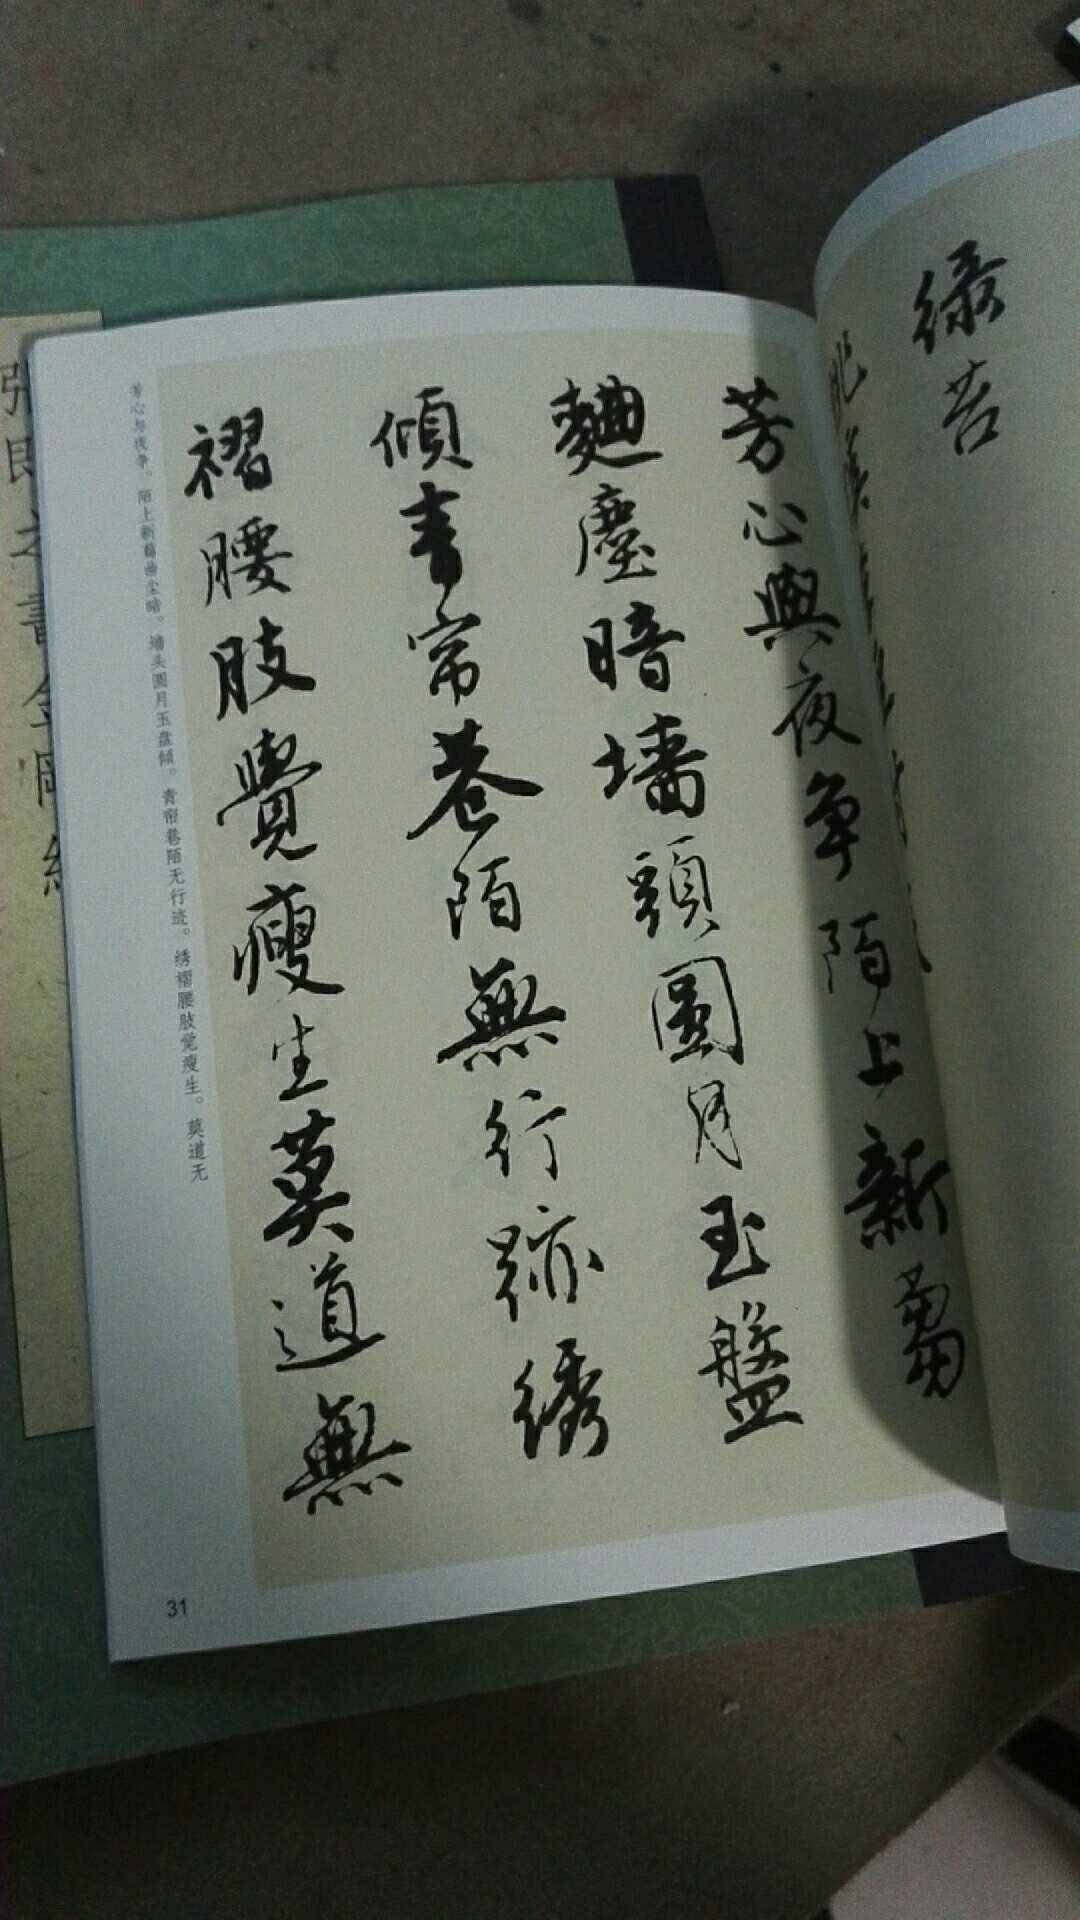 绿苔
芳心與夜争陌上新蒭
麯塵暗墙頭圓月玉盤
傾青帘巷陌無行跡綉
褶腰肢覺瘦生莫道無
芳心与夜争。陌上新蒭曲尘暗。墙头圆月玉盘倾。青帘巷陌无行迹。绣褶腰肢觉瘦生。莫道无
31